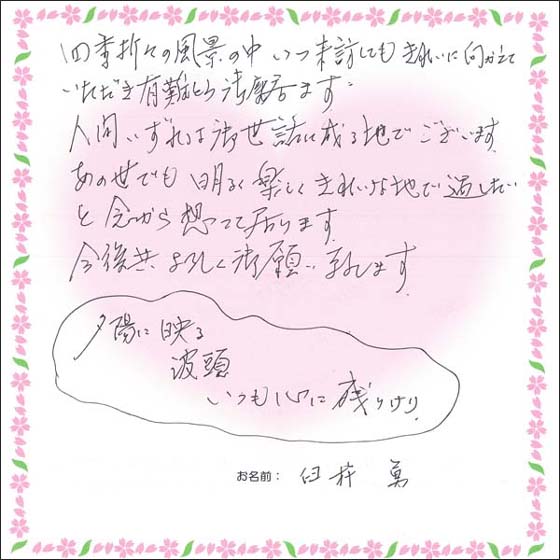 四季折々の風景の中 いつ来訪しても きれいに向かえて
いただき有難とう御座居ます
人間いずれは御世話に成る地でございます
あの世でも 明るく楽しく きれいな地で過したい
と 念から 想って居ります
今後共 よろしく御願い致します
夕陽に映る
波頭
いつも心に残りけり
お名前: 臼杵 勇